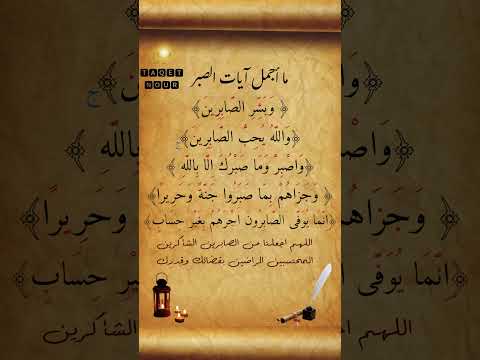 ما أجمل آيات الصبر
TAQET
NOUR
﴿ وَبَشِّرِ الصَّابِرِين﴾
﴿وَاللّهُ يُحِبُّ الصَّابِرِين﴾
﴿وَاصْبِرْ وَمَا صَبْرُكَ إِلَّا بِاللَّهِ ﴾
﴿ وَجَزَاهُمْ بِمَا صَبَرُوا جَنَّةً وَحَرِيرا﴾
﴿انَّمَا يُوَفَّى الصَّابِرُون اجْرهُمْ بِغَيْرِ حِسَاب﴾
اللهم اجعلنا من الصابرين الشاكرين
المحتسبين الراضين بقضائك وقدرك